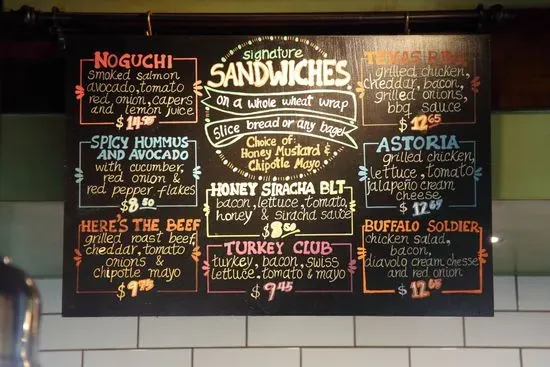 NOGUCHI
smoked salmon
avocado, tomato
red onion, capers
and lemon juice
$14.95
SPICY HUMMUS
AND AVOCADO
with cucumber,
red onion &
red pepper flakes
$8.50
HERE'S THE BEEF
grilled roast beef
cheddar, tomato
onions &
chipotle mayo
$9.75
signature
SANDWICHES
on a whole wheat wrap
Slice bread or any bagel
Choice of:
Honey Mustard &
Chipotle Mayo
HONEY SIRACHA BLT
bacon, lettuce, tomato,
honey & siracha sauce
$8.50
TURKEY CLUB
turkey, bacon, swiss
lettuce, tomato & mayo
$9.45
TEXAS
grilled chicken,
cheddar, bacon,
grilled onions,
bbq sauce
$12.65
ASTORIA
grilled chicken,
lettuce, tomato
jalapeño cream
cheese
$12.65
BUFFALO SOLDIER
chicken salad,
bacon,
diavolo cream chesse
and red onion
$12.65